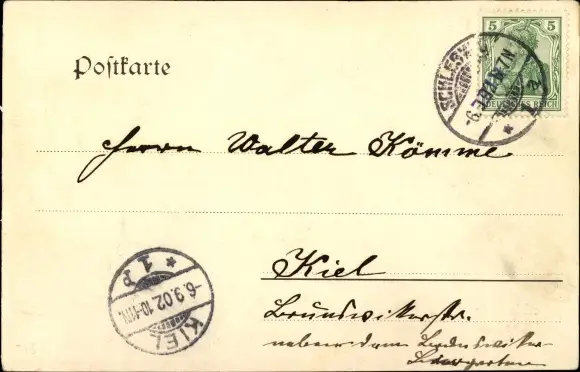 Postkarte
5 5
DEUTSCHES REICH
SCHLESW
Herrn Walter Kömme
Kiel
Brunswikerstr.
neben dem
KIEL
-6.9.02.10-11V.
* 1 P *